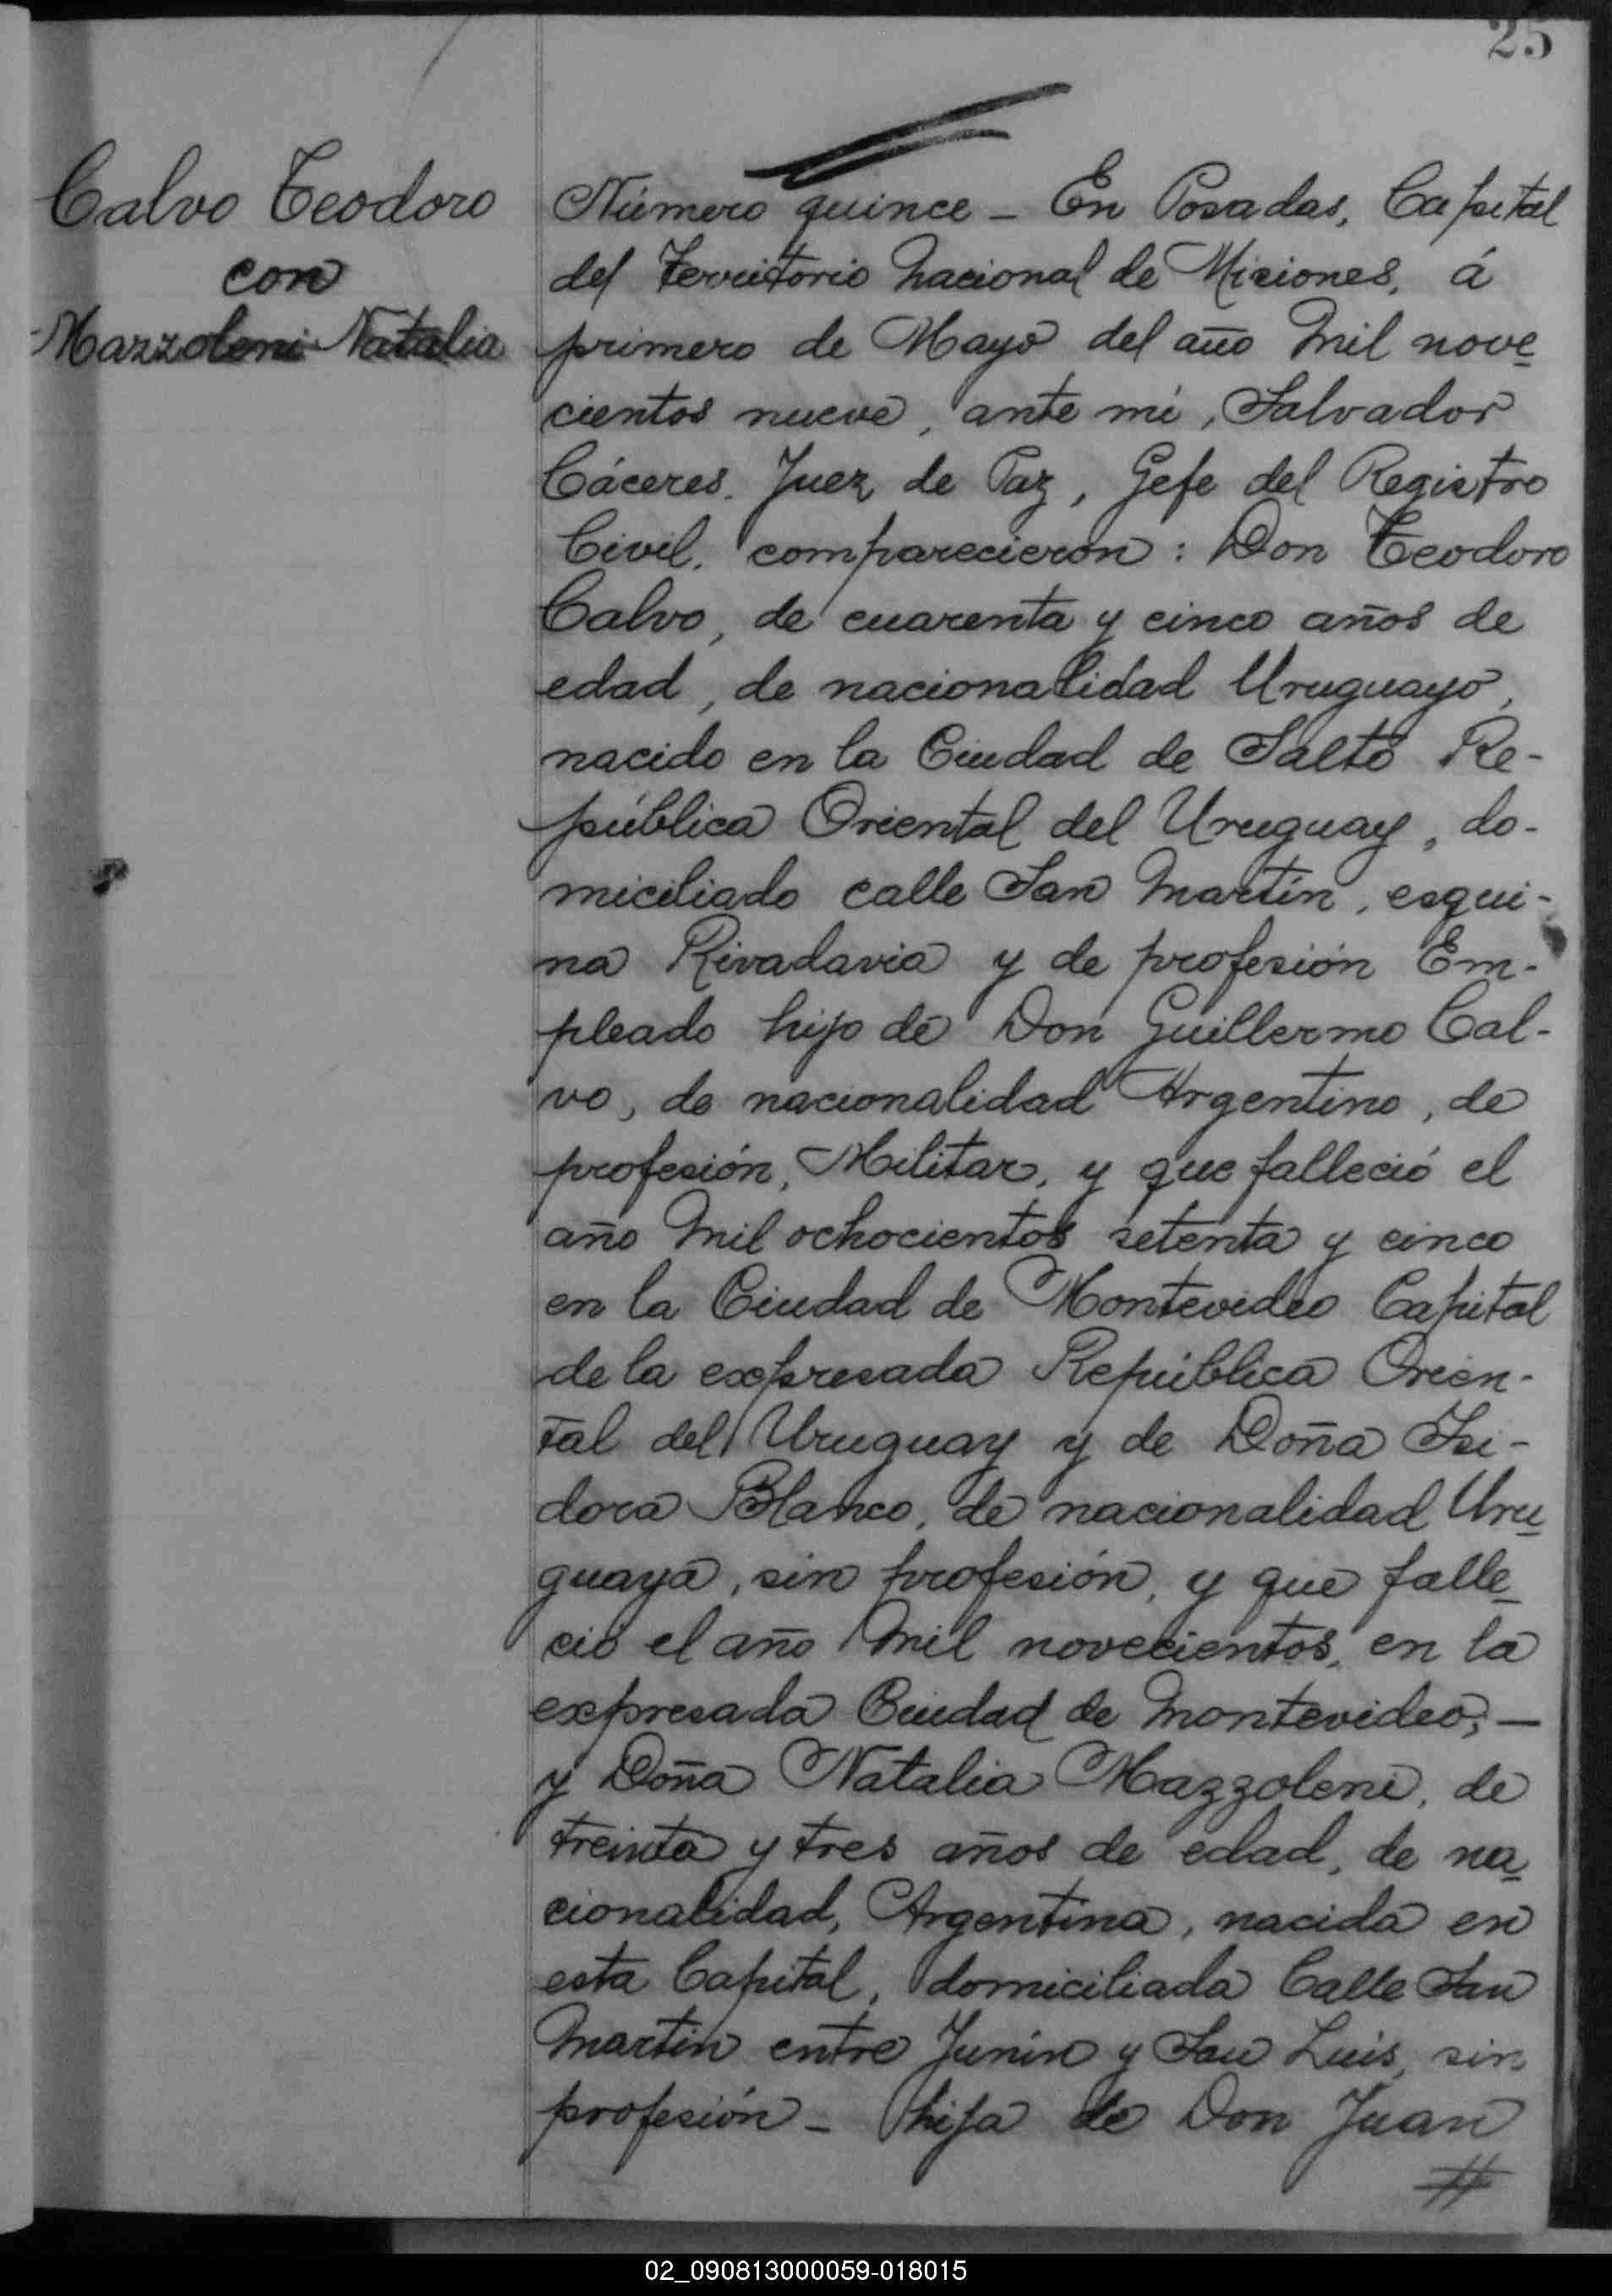 25
Calvo Teodoro
con
Mazzoleni Natalia
Número quince - En Posadas, Capital
del Territorio Nacional de Misiones, á
primero de Mayo del año mil nove
cientos nueve, ante mi, Salvador
Cáceres. Juez de Paz, Gefe del Registro
Civil, comparecieron: Don Teodoro
Calvo, de cuarenta y cinco años de
edad, de nacionalidad Uruguayo,
nacido en la Ciudad de Salto Re-
pública Oriental del Uruguay, do-
miciliado calle San Martín, esqui-
na Rivadavia y de profesión Em-
pleado hijo de Don Guillermo Cal-
vo, de nacionalidad Argentino, de
profesión, Militar, y que falleció el
año mil ochocientos setenta y cinco
en la Ciudad de Montevideo Capital
de la expresada República Orien-
tal del Uruguay y de Doña Isi-
dora Blanco, de nacionalidad Uru
guaya, sin profesión, y que falle
ció el año mil novecientos, en la
expresada Ciudad de Montevideo; —
y Doña Natalia Mazzoleni, de
treinta y tres años de edad, de na
cionalidad, Argentina, nacida en
esta Capital, domiciliada Calle San
Martin entre Junín y San Luis, sin
profesión - hija de Don Juan
//
02_090813000059-018015